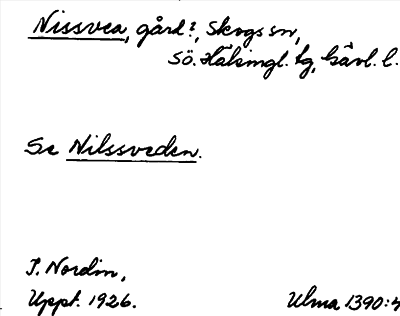 Nissvea, gård?, Skogs sn,
Sö. Hälsingl. tg, Gävl. l.
Se Nilssveden.
J. Nordin,
Uppt. 1926.
Ulma 1390:4